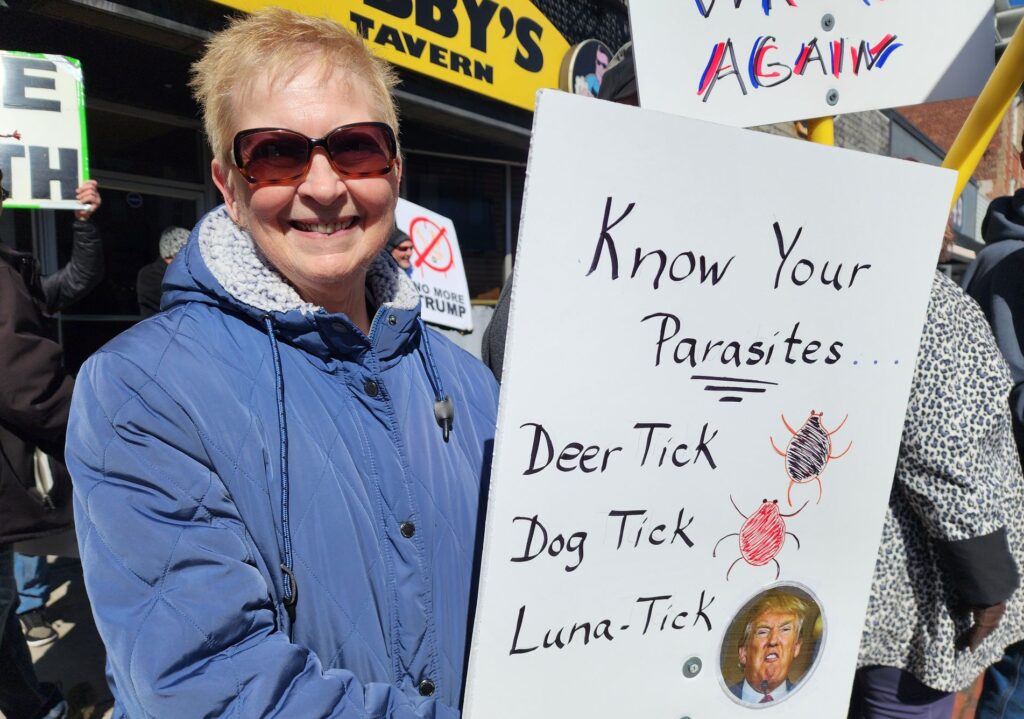 BBY'S
TAVERN
AGAIN
E
TH
NO MORE
TRUMP
Know Your
Parasites...
Deer Tick
Dog Tick
Luna-Tick